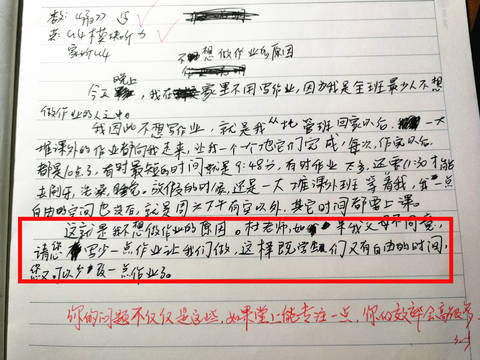 英: U4模块听力
家听U4
不想做作业的原因
今天晚上,我在家里不用写作业,因为我是全班最少人不想
做作业的人之中。
我因此不想写作业,就是我从托管班回家以后,一大
堆课外的作业都向我走来,让我一个个地它们完成,每次,作完以后
都是10点多,有时最短的时间就是9:48分,有时作业太多,还要
去刷牙,洗澡,睡觉。放假的时候,还是一大堆课外班等着我,我一点
自由的空间也没有,就是周六下午有空以外,其它时间都要上课。
这就是我不想做作业的原因。杜老师,如果我父母不同意,
请您写少一点作业让我们做,这样既我们又有自由的时间,
您又可以少一点作业了。
你的问题不仅仅是这些,如果堂上能专注一点,你的效率会高很多